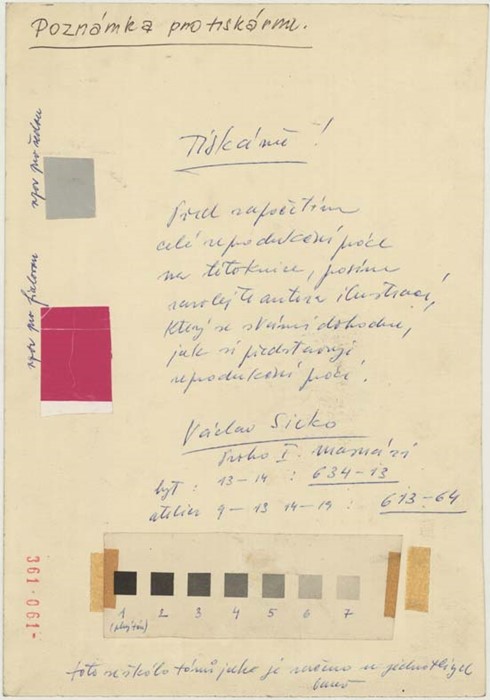 Poznámka pro tiskárnu.
vzor pro šedou
Tiskárně!
Před započetím
celé reprodukční práce
na této knize, prosím
zavolejte autora ilustrací,
který se s Vámi dohodne,
jak si představuji
reprodukční práci.
vzor pro fialovou
Václav Sivko
Praha I.
byt : 13-14 : 634-13
atelier 9-13 14-19 : 613-64
1 2 3 4 5 6 7
361·061-
toto je škála tónů jako je